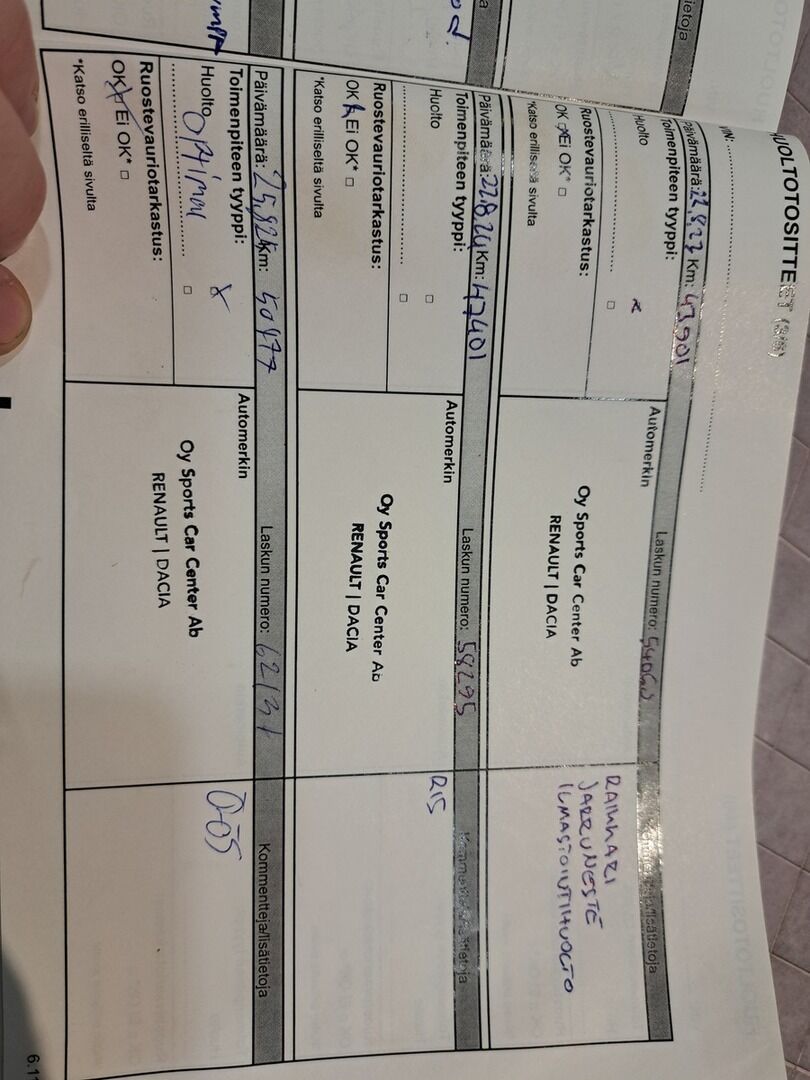 HUOLTOTOSITTEET (3/6)
VIN:
Päivämäärä: 22.8.23 Km: 43901
Laskun numero:
Toimenpiteen tyyppi:
Huolto x
□
Ruostevauriotarkastus:
OK x Ei OK* □
*Katso erilliseltä sivulta
Automerkin
Oy Sports Car Center Ab
RENAULT | DACIA
RAIKKARI
JARRUNESTE
ILMASTOINTIHUOLTO
Päivämäärä: 22.8.24 Km: 47401
Laskun numero: 58295
Kommentteja/lisätietoja
Toimenpiteen tyyppi:
Huolto □
□
Ruostevauriotarkastus:
OK Ei OK* □
*Katso erilliseltä sivulta
Automerkin
Oy Sports Car Center Ab
RENAULT | DACIA
R15
Päivämäärä: 25.8.25 Km: 50477
Laskun numero: 62131
Kommentteja/lisätietoja
Toimenpiteen tyyppi:
Huolto x
Optimal □
Ruostevauriotarkastus:
OK x Ei OK* □
*Katso erilliseltä sivulta
Automerkin
Oy Sports Car Center Ab
RENAULT | DACIA